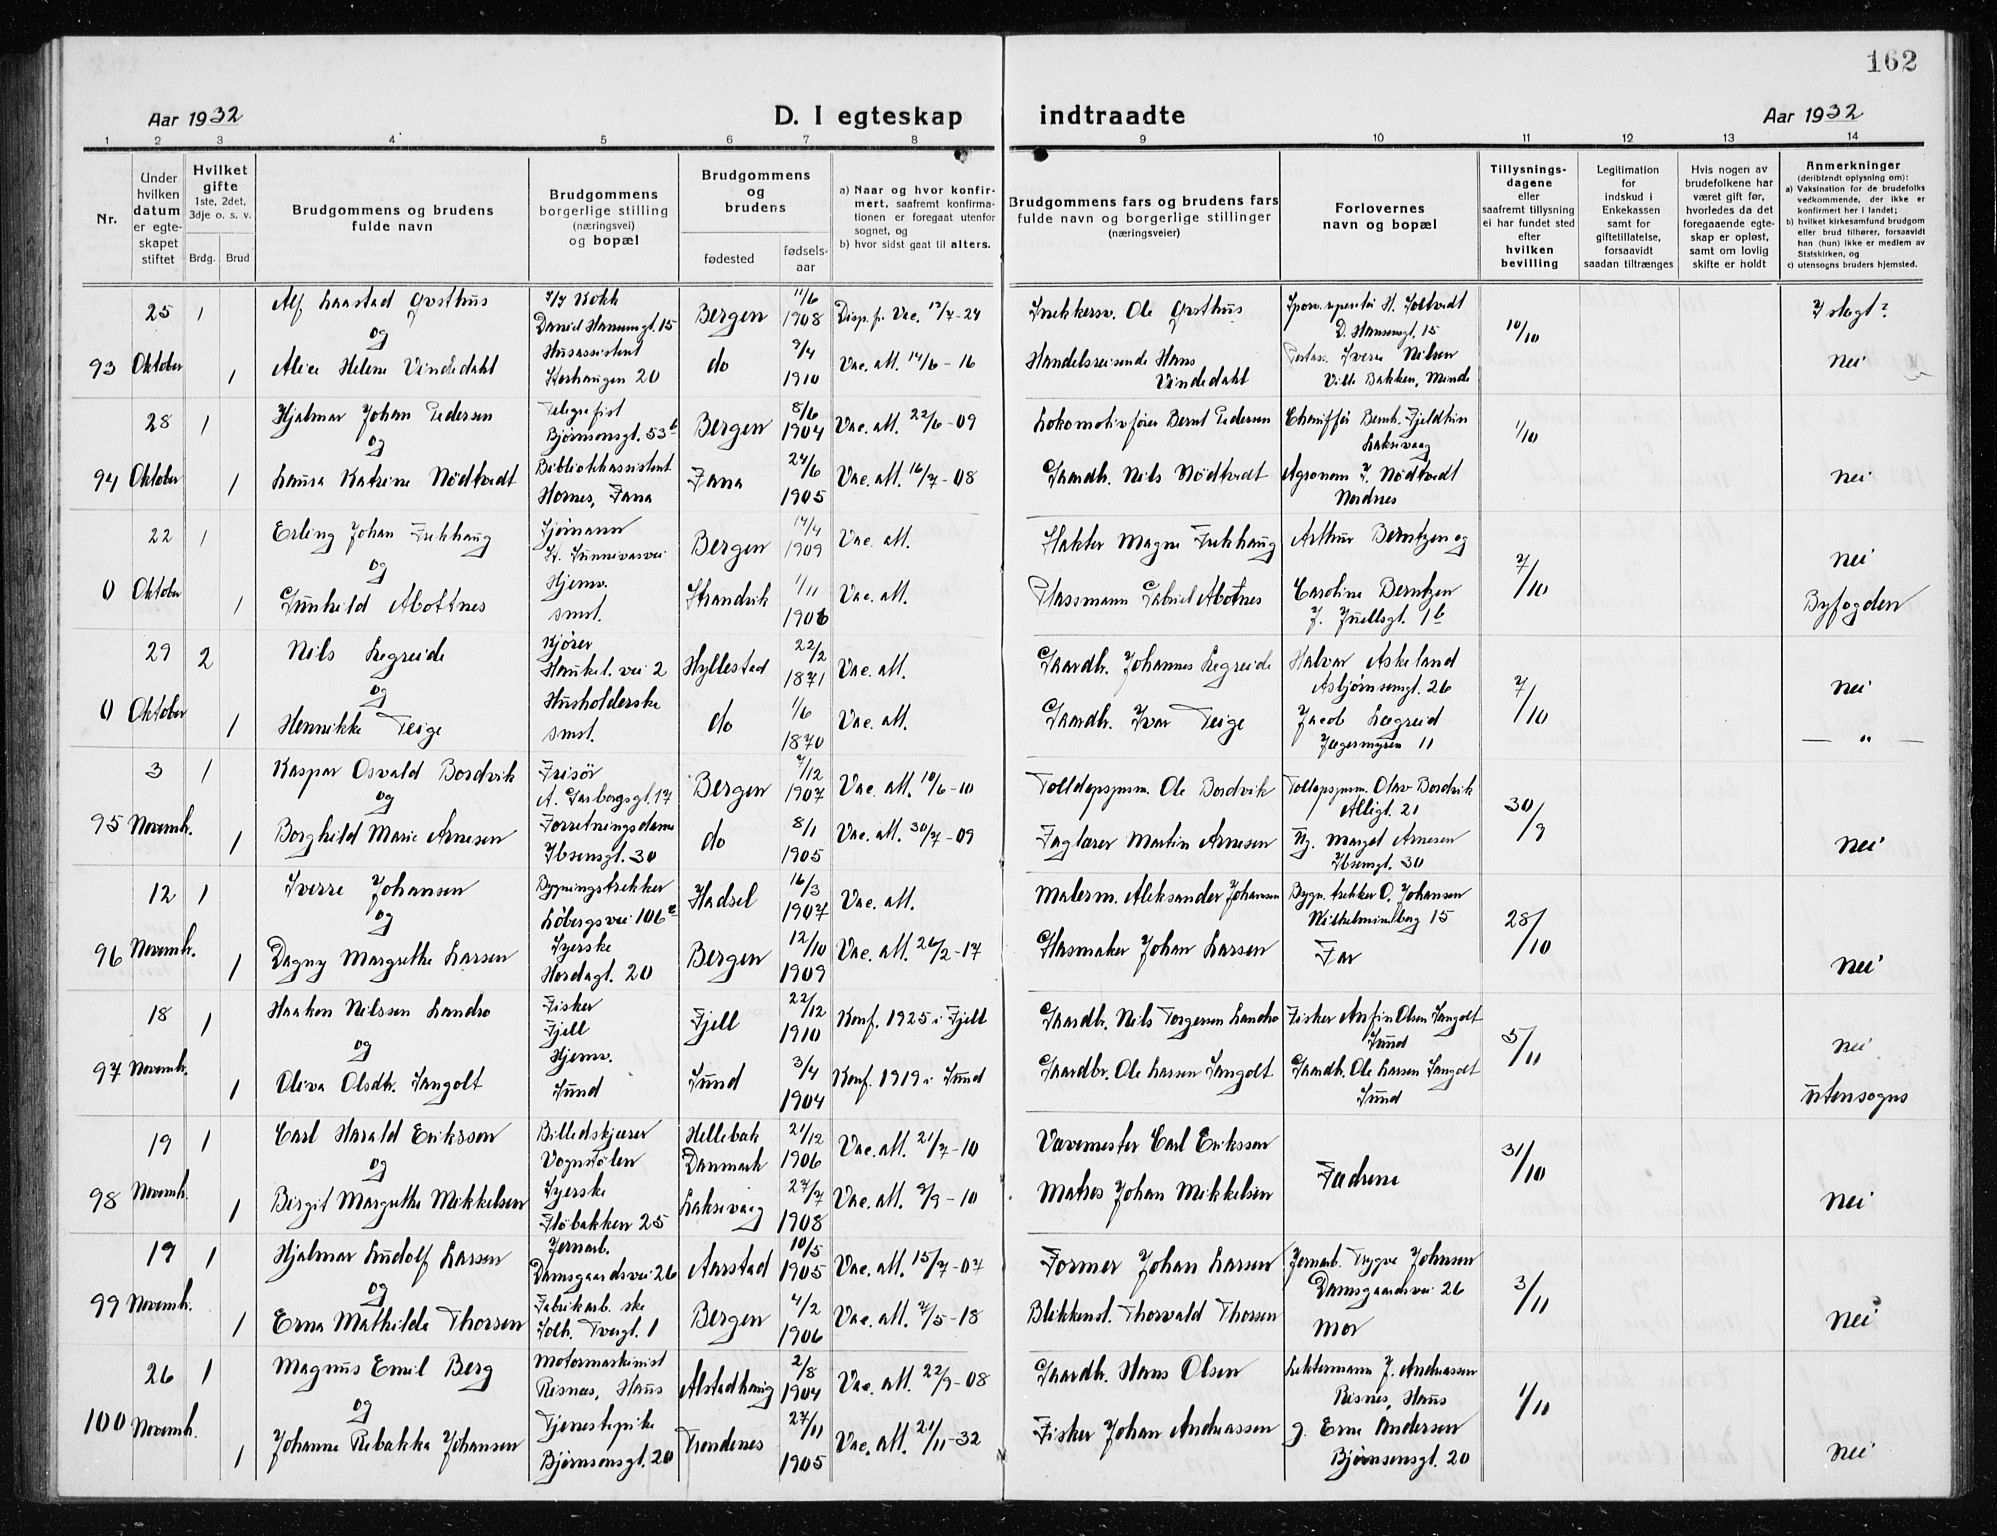 162
Aar 1932
D. I egteskap indtraadte
Aar 1932
1 2 3 4 5 6 7 8 9 10 11 12 13 14
Nr.
Under hvilken datum er egte-skapet stiftet
Hvilket gifte 1ste, 2det, 3dje o. s. v.
Brdg. Brud
Brudgommens og brudens fulde navn
Brudgommens borgerlige stilling (næringsvei) og bopæl
Brudgommens og brudens
fødested
fødsels-aar
a) Naar og hvor konfir-mert, saafremt konfirma-tionen er foregaat utenfor sognet, og
b) hvor sidst gaat til alters.
Brudgommens fars og brudens fars fulde navn og borgerlige stillinger (næringsveier)
Forlovernes navn og bopæl
Tillysnings-dagene eller saafremt tillysning ei har fundet sted efter hvilken bevilling
Legitimation for indskud i Enkekassen samt for giftetillatelse, forsaavidt saadan tiltrænges
Hvis nogen av brudefolkene har været gift før, hvorledes da det foregaaende egte-skap er opløst, samt om lovlig skifte er holdt
Anmerkninger (deriblandt oplysning om):
a) Vaksination for de brudefolks vedkommende, der ikke er konfirmert her i landet;
b) hvilket kirkesamfund brudgom eller brud tilhører, forsaavidt han (hun) ikke er medlem av Statskirken, og
c) utensogns bruders hjemsted.
25 1 Alf Laastad Gosthus Kokk Daniel Hansensgt. 15 Bergen 11/6 1908 Disp. f. Vac. 12/7-24 Snekkersv. Ole Gosthus H. Soltvedt D. Hansensgt. 15 10/10 I slegt?
og
93 Oktober 1 Alice Helene Vindedahl Husassistent 20 do 9/4 1910 Vac. att. 14/6-16 Handelsreisende Hans Vindedahl Sverre Nilsen Ville Bakken, Minde nei
28 1 Hjalmar Johan Pedersen Telegrafist Bjørnsonsgt. 53b Bergen 8/6 1904 Vac. att. 22/6-09 Lokomotivfører Bernt Pedersen Chauffør Bernh. Laksevaag 1/10
og
94 Oktober 1 Laura Katrine Nødtvedt Bibliotekassistent Hornes, Fana Fana 24/6 1905 Vac. att. 16/7-08 Gaardb. Nils Nødtvedt Agronom I. Nødtvedt Nordnes nei
22 1 Erling Johan Frekhaug Sjømann St. Sunnivasvei Bergen 14/4 1909 Vac. att. Slakter Magne Frekhaug Arthur Berntzen og nei
og
0 Oktober 1 Gunhild Abottnes Hjemv. smst. Strandvik 1/11 1906 Vac. att. Plassmann Gabriel Abotnes Caroline Berntzen J. Juellsgt. 1b 7/10 Byfogden
29 2 Nils Legreide Kjører Haukel. vei 2 Hyllestad 22/2 1871 Vac. att. Gaardbr. Johannes Legreide Halvar Askeland Asbjørnsensgt. 26 7/10 nei
og
0 Oktober 1 Henrikke Teige Husholderske smst. do 1/6 1870 Vac. att. Gaardb. Ivar Teige Jacob Lægreid Jægermyren 11 — " —
3 1 Kaspar Osvald Bordvik Frisør A. Garborgsgt. 17 Bergen 7/12 1907 Vac. att. 10/6-10 Tolldopsynsm. Ole Bordvik Tollopsynsm. Olav Bordvik Alligt. 21 30/9
og
95 Novemb. 1 Borghild Marie Arnesen Forretningsdame Ibsensgt. 30 do 8/1 1905 Vac. att. 30/7-09 Faglærer Martin Arnesen Margot Arnesen Ibsensgt. 30 nei
12 1 Sverre Johansen Bygningstrekker Løbergsvei 106 Hadsel 16/3 1907 Vac. att. Malerm. Aleksander Johansen Bygn. trekker O. Johansen Wilhelmineborg 15 28/10
og
96 Novemb. 1 Dagny Margrethe Larsen Syerske Hordagt. 20 Bergen 12/10 1909 Vac. att. 26/2-17 Glasmaker Johan Larsen Far nei
18 1 Haakon Nilssen Landro Fisker Fjell Fjell 22/12 1910 Konf. 1925 i Fjell Gaardbr. Nils Torgersen Landro Fisker Anfin Olsen Sangolt Sund 5/11 nei
og
97 Novemb. 1 Oliva Olsdtr. Sangolt Hjemv. Sund Sund 3/4 1904 Konf. 1919 i Sund Gaardbr. Ole Larsen Sangolt Gaardb. Ole Larsen Sangolt Sund utensogns
19 1 Carl Harald Eriksson Billedskjærer Vognstølen Hellebæk Danmark 21/12 1906 Vac. att. 21/7-10 Vævemester Carl Eriksson Fædrene 31/10
og
98 Novemb. 1 Birgit Margrethe Mikkelsen Syerske Fløbakken 25 Laksevaag 27/7 1908 Vac. att. 9/9-10 Matros Johan Mikkelsen nei
19 1 Hjalmar Ludolf Larsen Jernarb. Damsgaardsvei 26 Aarstad 10/5 1905 Vac. att. 15/7-07 Former Johan Larsen Jernarb. Trygve Johnsen Damsgaardsvei 26 3/11
og
99 Novemb. 1 Erna Mathilde Thorsen Fabrikarb. ske Solh. Tvergt. 1 Bergen 4/2 1906 Vac. att. 7/5-18 Blikkensl. Thorvald Thorsen Mor nei
26 1 Magnus Emil Berg Motormaskinist Risnes, Haus Alstadhaug 2/8 1904 Vac. att. 22/9-08 Gaardb. Hans Olsen J. Andreassen Risnes, Haus 1/11
og
100 Novemb. 1 Johanne Rebakka Johansen Tjenestepike Bjørnsonsgt. 20 Trondenes 27/11 1905 Vac. att. 21/11-32 Fisker Johan Andreassen g. Erne Andersen Bjørnsensgt. 20 nei